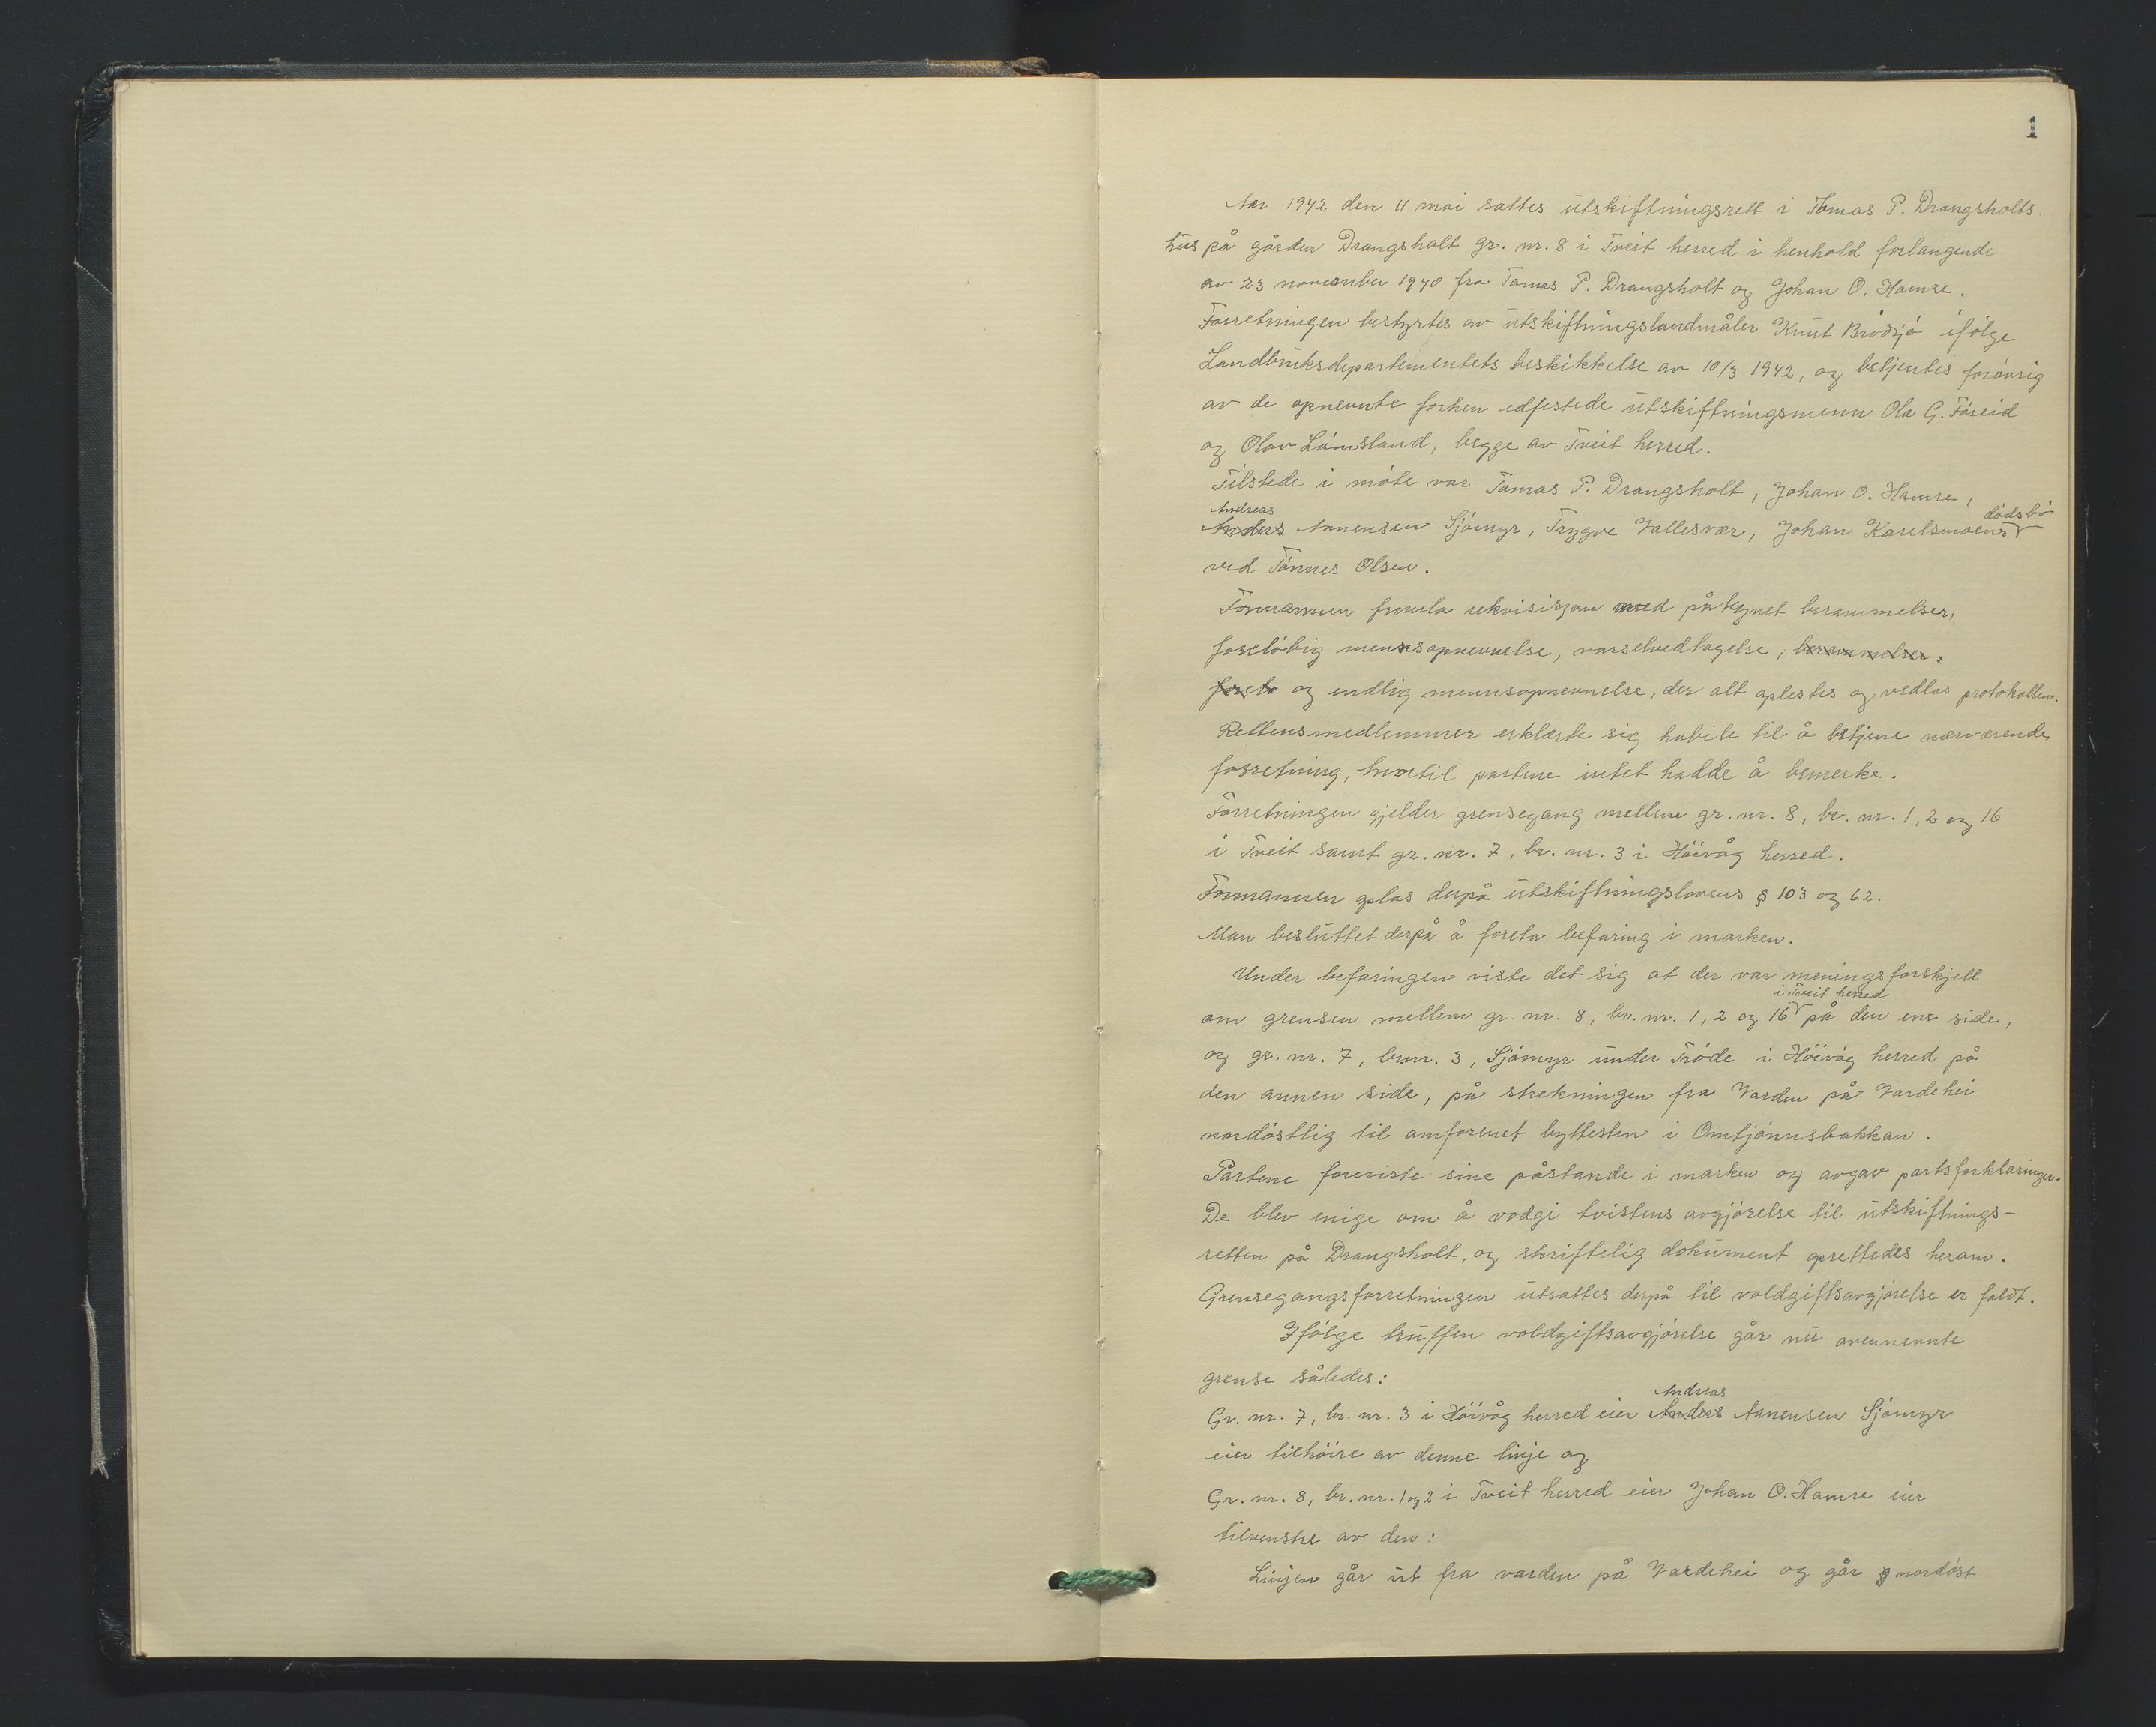 1
Aar 1942 den 11 mai sattes utskiftningsrett i Tomas P. Drangsholts
hus på gården Drangsholt gr. nr. 8 i Tveit herred i henhold forlangende
av 23 november 1940 fra Tomas P. Drangsholt og Johan O. Hamre.
Forretningen bestyrtes av utskiftningslandmåler Knut Brødsjø ifølge
Landbruksdepartementets beskikkelse av 10/3 1942, og betjentes forøvrig
av de opnevnte forhen edfestede utskiftningsmenn Ola G. Føreid
og Olav Lømsland, begge av Tveit herred.
Tilstede i møte var Tomas P. Drangsholt, Johan O. Hamre,
Andreas dødsbo
Anders Aanensen Sjømyr, Trygve Vallesvær, Johan Karelsmoens
ved Tønnes Olsen.
Formannen fremla rekvisisjon med påtegnet berammelser,
foreløbig mennsopnevnelse, varselvedtagelse, berammelser,
forelø og endlig mennsopnevnelse, der alt oplestes og vedlas protokollen.
Rettensmedlemmer erklærte sig habile til å betjene nærværende
forretning, hvortil partene intet hadde å bemerke.
Forretningen gjelder grensegang mellem gr. nr. 8, br. nr. 1, 2 og 16
i Tveit samt gr. nr. 7, br. nr. 3 i Höivåg herred.
Formannen oplas derpå utskiftningslovens § 103 og 62.
Man besluttet derpå å foreta befaring i marken.
Under befaringen viste det sig at der var meningsforskjell
i Tveit herred
om grensen mellem gr. nr. 8, br. nr. 1, 2 og 16 på den ene side,
og gr. nr. 7, br.nr. 3, Sjømyr under Trøde i Höivåg herred på
den annen side, på strekningen fra Varden på Vardehei
nordøstlig til omforenet byttesten i Omtjønnsbakkan.
Partene foreviste sine påstande i marken og avgav partsforklaringer.
De blev enige om å voldgi tvistens avgjørelse til utskiftnings-
retten på Drangsholt, og skriftelig dokument oprettedes herom.
Grensegangsforretningen utsattes derpå til voldgiftsavgjørelse er faldt.
Ifølge truffen voldgiftsavgjørelse går nu ovennevnte
grense således:
Andreas
Gr. nr. 7, br. nr. 3 i Höivåg herred eier Anders Aanensen Sjømyr
eier tilhöire av denne linje og
Gr. nr. 8, br. nr. 1 og 2 i Tveit herred eier Johan O. Hamre eier
tilvenstre av den:
Linjen går ut fra varden på Vardehei og går nordøst